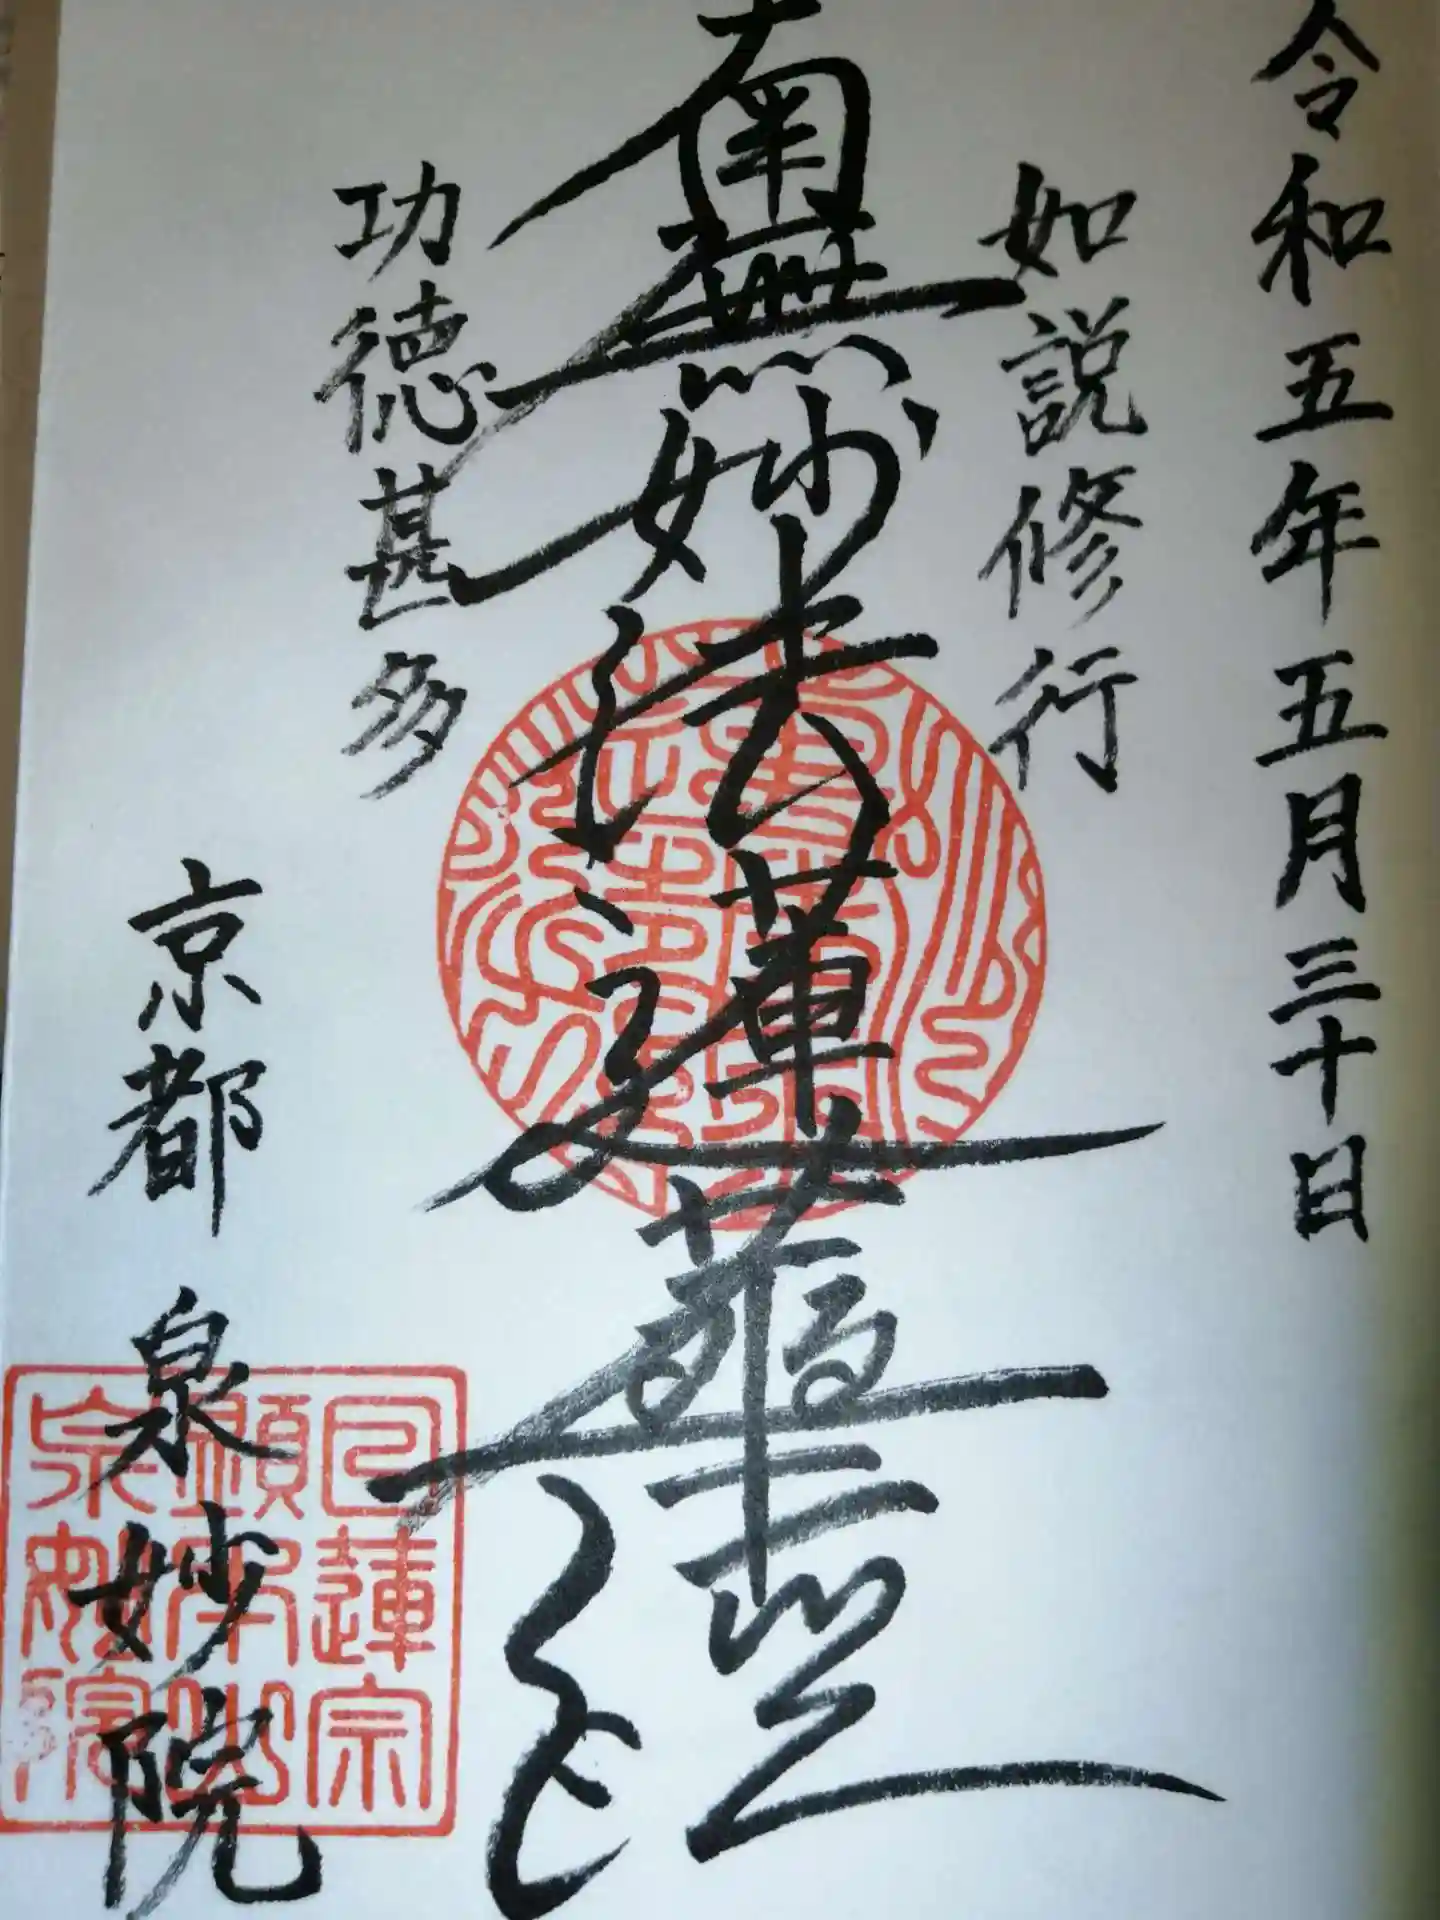 令和五年五月三十日
如説修行
南無妙法蓮華経
功徳甚多
京都 泉妙院
日蓮宗
顕本山
泉妙院